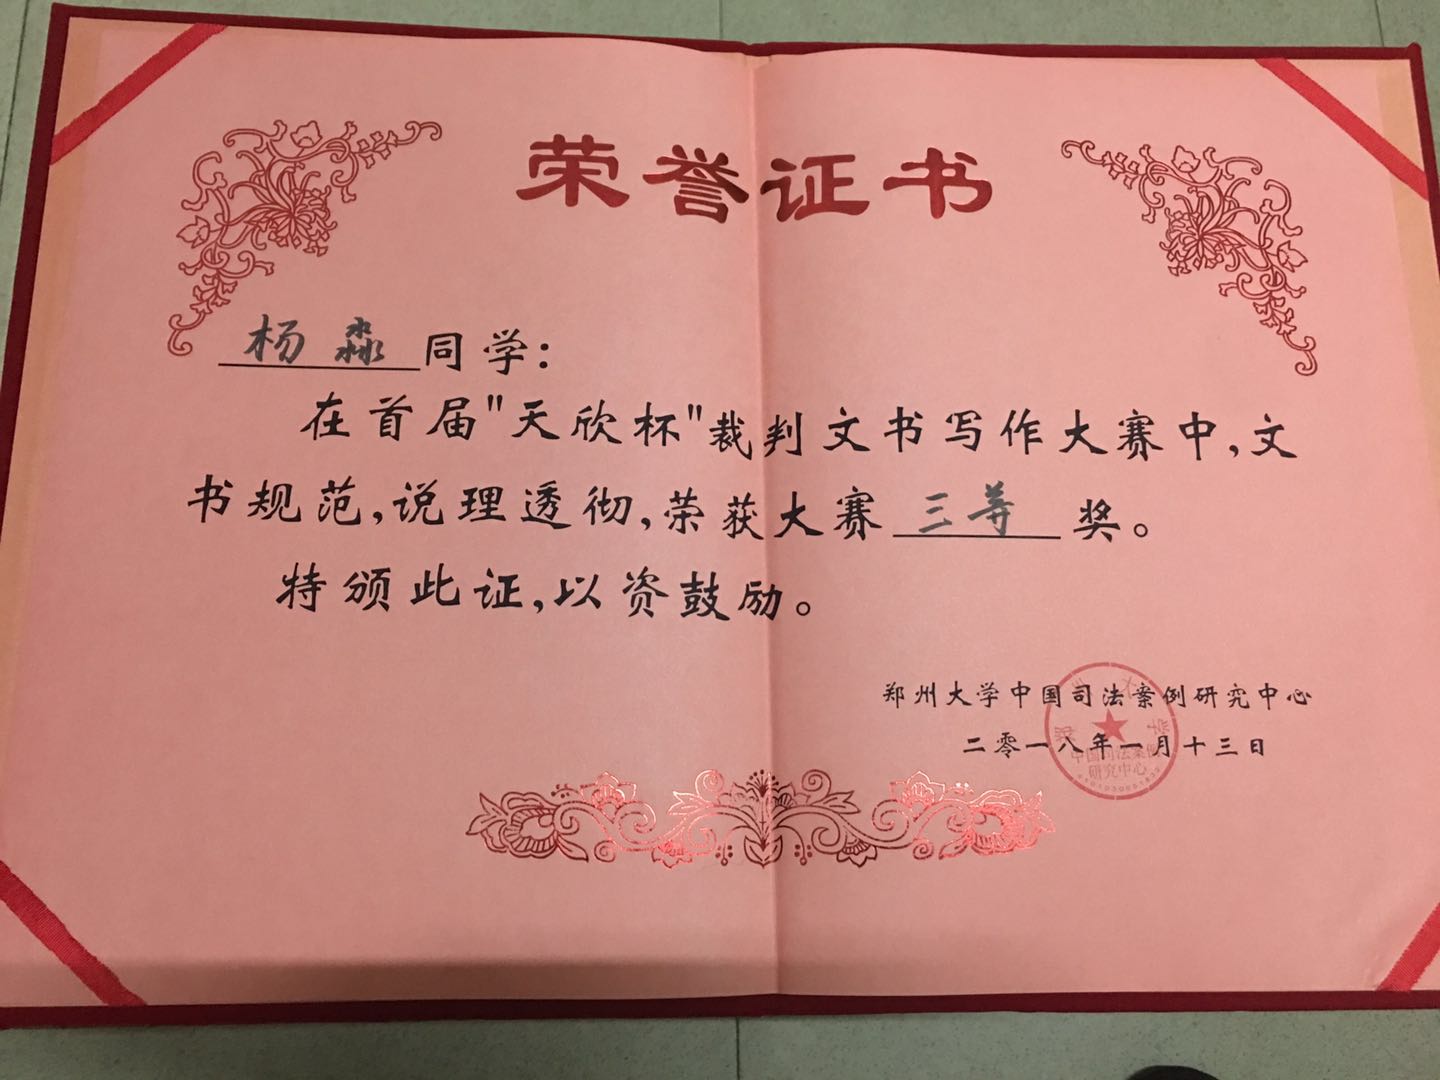 荣誉证书
杨淼同学:
在首届"天欣杯"裁判文书写作大赛中,文
书规范,说理透彻,荣获大赛三等奖。
特颁此证,以资鼓励。
郑州大学中国司法案例研究中心
二零一八年一月十三日
郑州大学
中国司法案例
研究中心